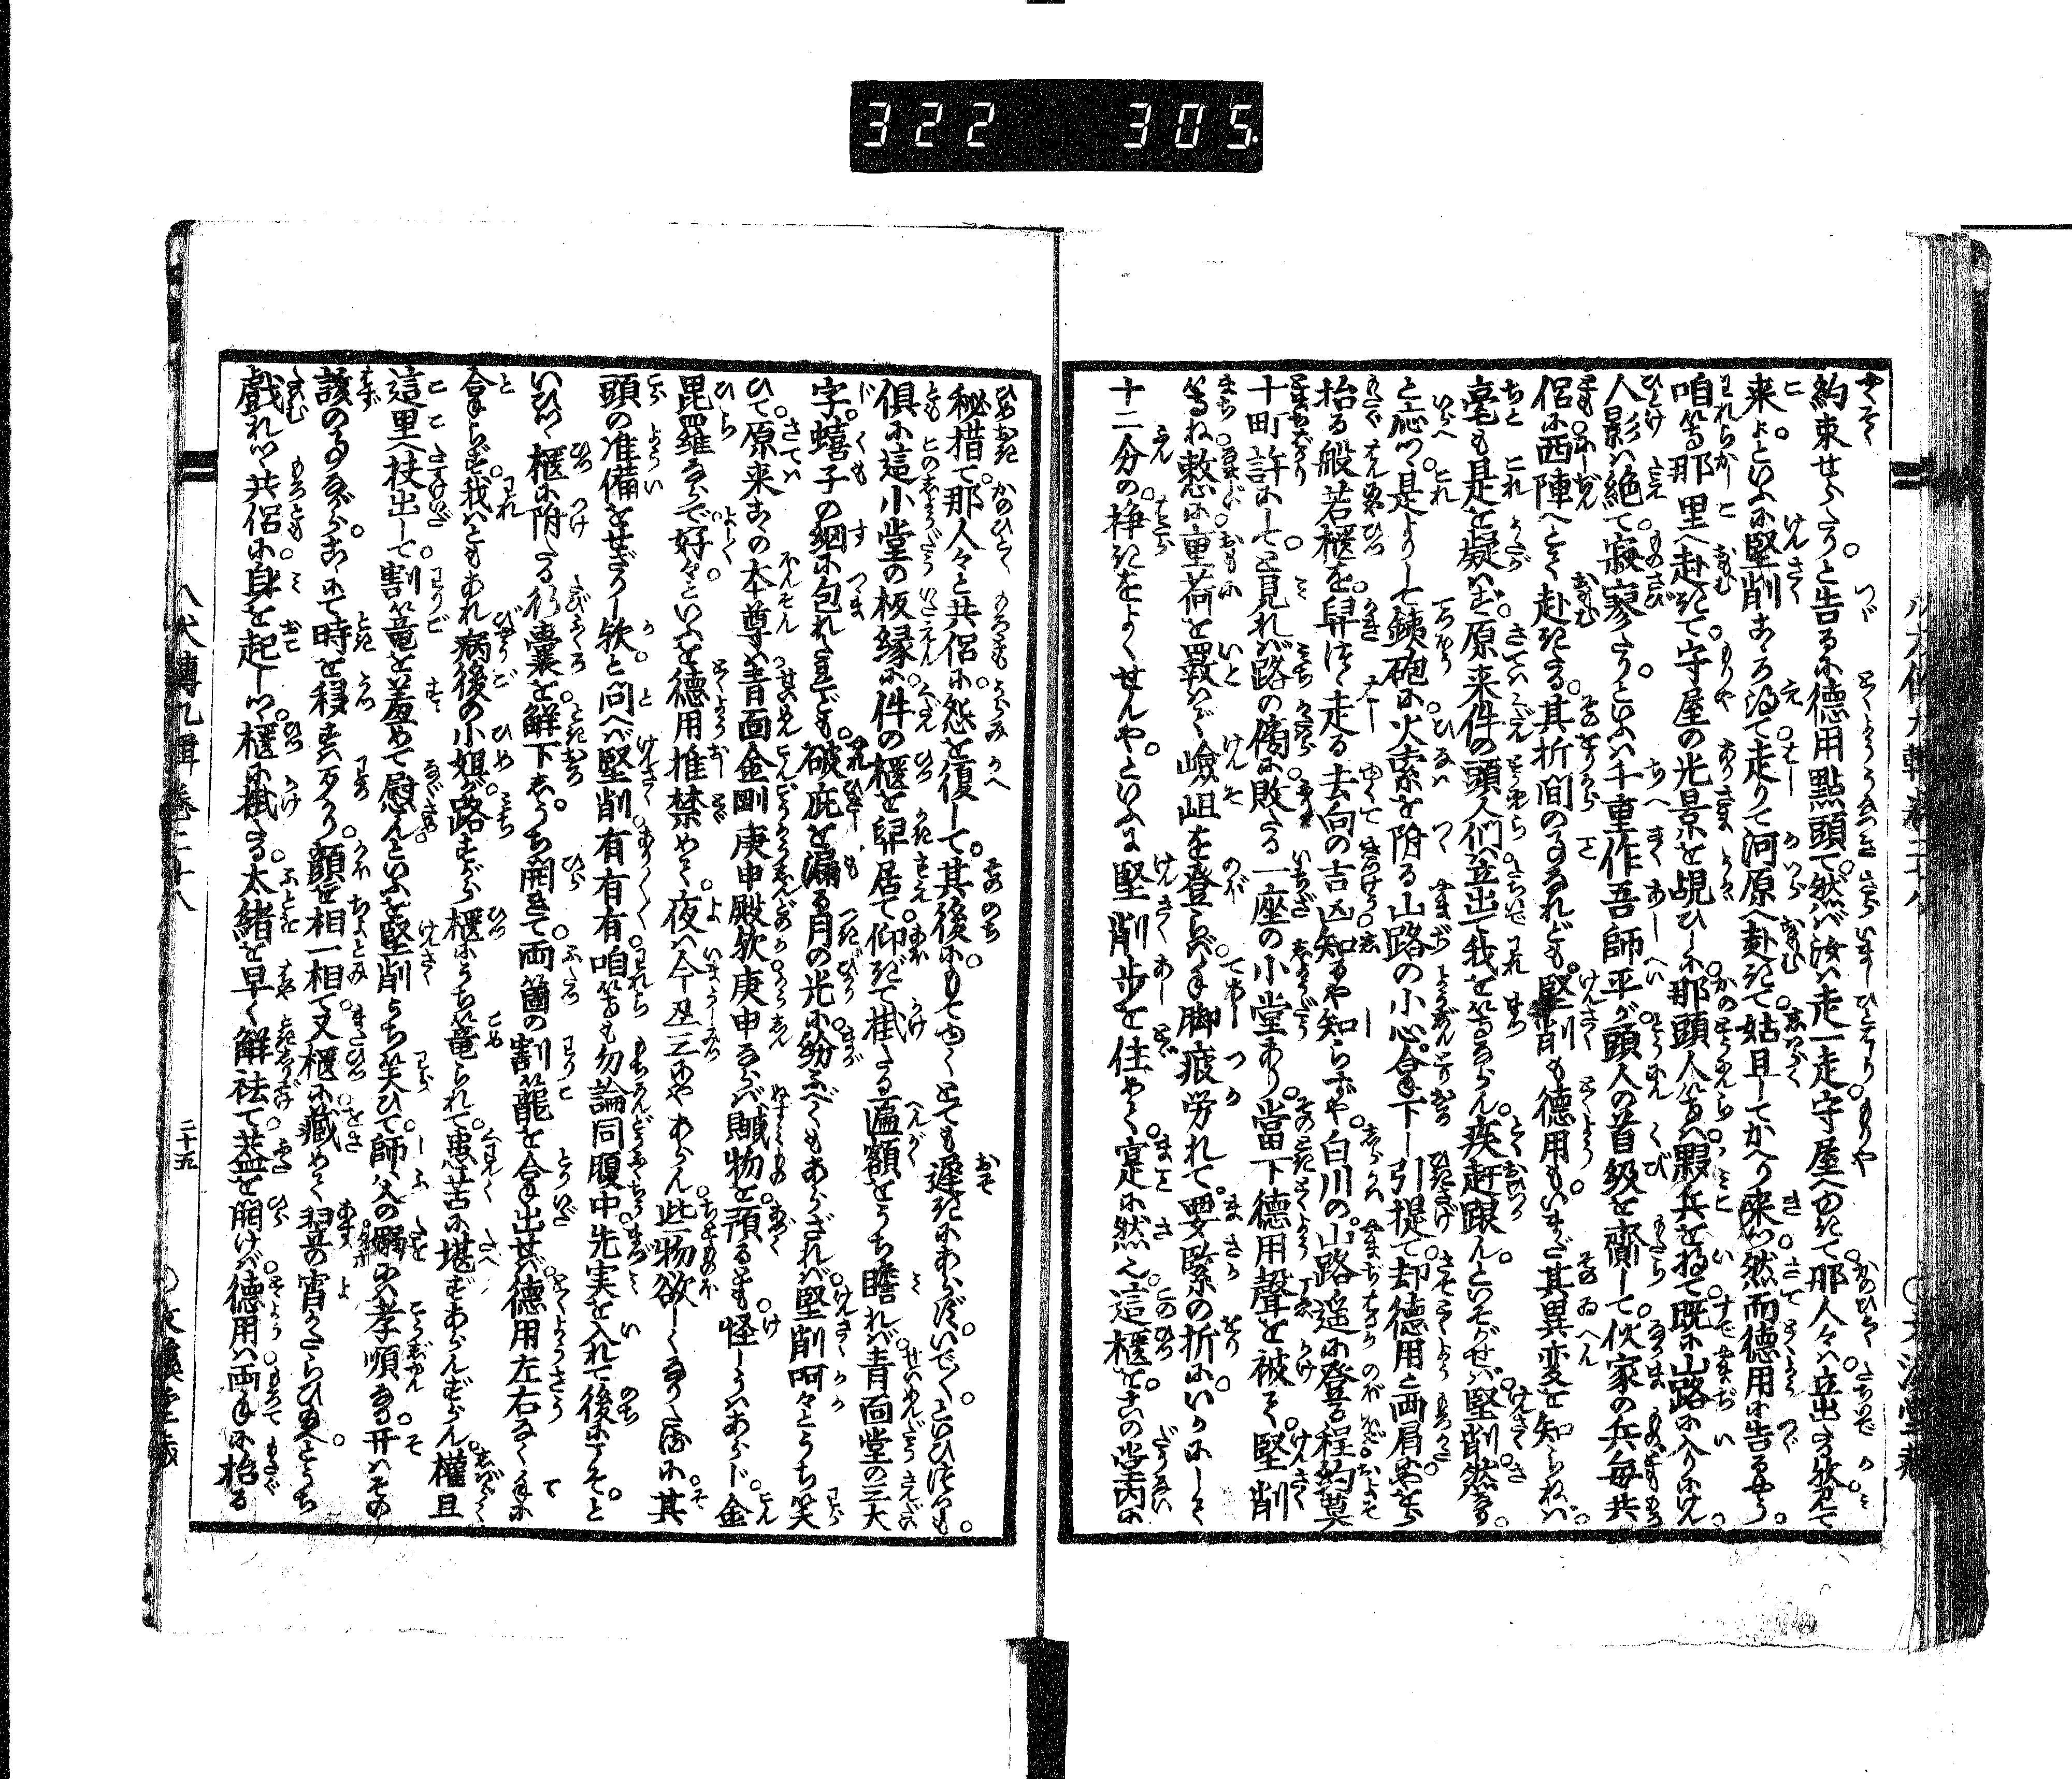 322 305
約束せらたりと告るに徳用點頭て然ば汝は走一走守屋へゆきて那人々は立出たる歟見て
来よといふに堅削こゝろ得て走りて河原へ赴きて姑且してかへり来つ然而徳用に告るやう
咱等那里へ赴きて守屋の光景を覘ひしに那頭人等は夥兵を将て既に山路に入りにけん
人影は絶て寂寥たりといふは千重作吾師平が頭人の首級を齎して伙家の兵毎共
侶に西陣へとく赴きたる其折間の事なれども堅削も徳用もいまだ其異変を知らねば
毫も是を疑はず原来件の頭人們は立出て我を等るならん疾赶跟んといそがせば堅削然なり
と応つゝ是よりして銕砲に火索を附る山路の小心合手下し引提て却徳用と両肩にやをら
抬る般若櫃を舁つゝ走る去向の吉凶知るや知らずや白川の山路遥に登る程約莫
十町許にして見れば路の傍に敗たる一座の小堂あり當下徳用聲を被て堅削
等ね憖に重荷を累いで嶮岨を登らば手脚疲労れて要緊の折にいかにして
十二分の挊きをよくせんやといふに堅削歩を住めて寔に然也這櫃をこの堂内に
八犬傳九輯巻二十八
二十五
秘措て那人々と共侶に怨を復して其後にもてゆくとも遅きにあらずいでといひつゝも
倶に這小堂の板縁に件の櫃を舁居て仰ぎて掛たる匾額をうち瞻れば青面堂の三大
字蟢子の網に包れたれども破庇を漏る月の光に紛ふべくもあらざれば堅削呵々とうち笑
ひて原来こゝの本尊は青面金剛庚申殿歟庚申ならば贓物を預るとも怪しうはあらじ金
毘羅ならで好々といふを徳用推禁めて夜は今丑三にやあらん些物欲しくなりたるに其
頭の准備をせざりし歟と問へば堅削有有有咱等も勿論同腹中先実を入れて後にこそと
いひつゝ櫃に附たる行嚢を鮮下しうち開きて両箇の割籠を合手出せば徳用左右なく手に
合手らず我はともあれ病後の小姐が路すがら櫃にうち篭られて患苦に堪ずあらんずらん權且
這里へ扶出して割篭を羞めて慰んといふを堅削うち笑ひて師父の嫐に孝順なる开はその
該の事ながらこゝにて時を移すは歹かり顔を相一相て又櫃に藏めて翌の宵にかたらひ夷とうち
戲れつゝ共侶に身を起しつゝ櫃に掛たる太緒を早く解祛て蓋を開けば徳用は両手に抬る